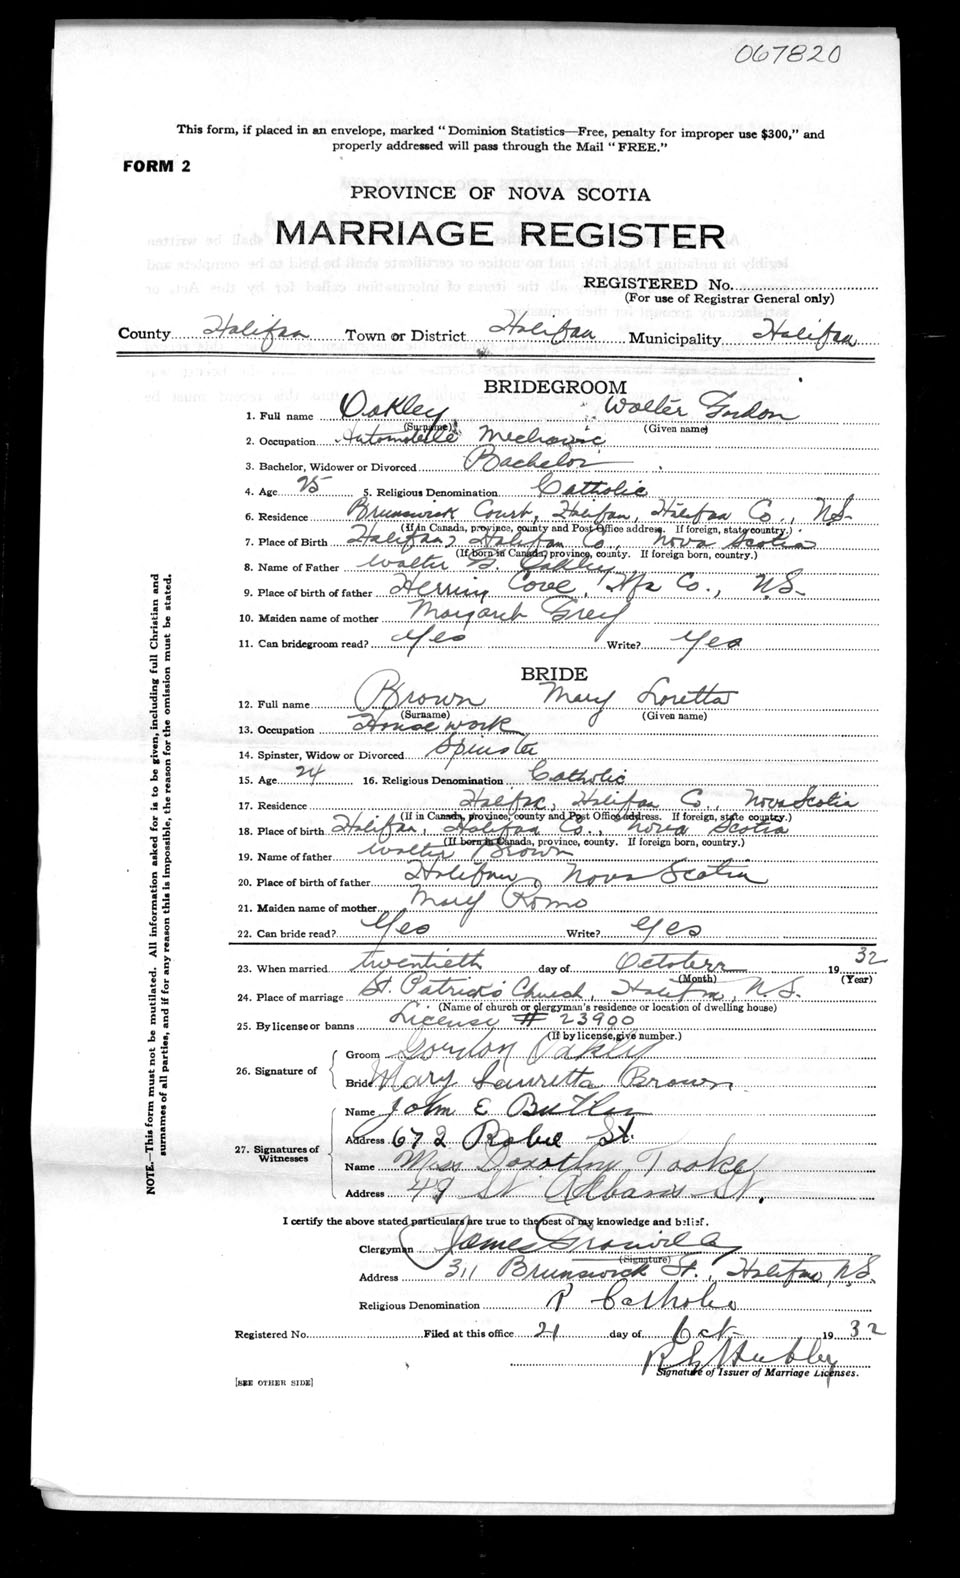 067820
This form, if placed in an envelope, marked "Dominion Statistics—Free, penalty for improper use $300," and
properly addressed will pass through the Mail "FREE."
FORM 2
PROVINCE OF NOVA SCOTIA
MARRIAGE REGISTER
REGISTERED No.
(For use of Registrar General only)
County Halifax Town or District Halifax Municipality Halifax
BRIDEGROOM
1. Full name Oakley Walter Gordon
(Surname) (Given name)
2. Occupation Automobile Mechanic
3. Bachelor, Widower or Divorced Bachelor
4. Age 25 5. Religious Denomination Catholic
6. Residence Brunswick Court, Halifax, Halifax Co., N.S.
(If in Canada, province, county and Post Office address. If foreign, state country.)
7. Place of Birth Halifax, Halifax Co., Nova Scotia
(If born in Canada, province, county. If foreign born, country.)
8. Name of Father Walter Oakley
9. Place of birth of father Herring Cove, Hfx Co., N.S.
10. Maiden name of mother Margaret Grey
11. Can bridegroom read? Yes Write? Yes
BRIDE
12. Full name Brown Mary Loretta
(Surname) (Given name)
13. Occupation Housework
14. Spinster, Widow or Divorced Spinster
15. Age 24 16. Religious Denomination Catholic
17. Residence Halifax, Halifax Co., Nova Scotia
(If in Canada, province, county and Post Office address. If foreign, state country.)
18. Place of birth Halifax, Halifax Co., Nova Scotia
(If born in Canada, province, county. If foreign born, country.)
19. Name of father Walter Brown
20. Place of birth of father Halifax, Nova Scotia
21. Maiden name of mother Mary Romo
22. Can bride read? Yes Write? Yes
23. When married twentieth day of October 1932
(Month) (Year)
24. Place of marriage St. Patrick's Church, Halifax, N.S.
(Name of church or clergyman's residence or location of dwelling house)
25. By license or banns License # 23900
(If by license, give number.)
26. Signature of
Groom Gordon Oakley
Bride Mary Lauretta Brown
27. Signatures of Witnesses
Name John E Butler
Address 672 Robie St.
Name Miss Dorothy Tooke
Address 49 St Albans St.
I certify the above stated particulars are true to the best of my knowledge and belief.
Clergyman James Granville
(Signature)
Address 311 Brunswick St., Halifax, N.S.
Religious Denomination R Catholic
Registered No. Filed at this office 21 day of Oct 1932
Hubley
Signature of Issuer of Marriage Licenses.
[SEE OTHER SIDE]
NOTE.—This form must not be mutilated. All information asked for is to be given, including full Christian and
surnames of all parties, and if for any reason this is impossible, the reason for the omission must be stated.